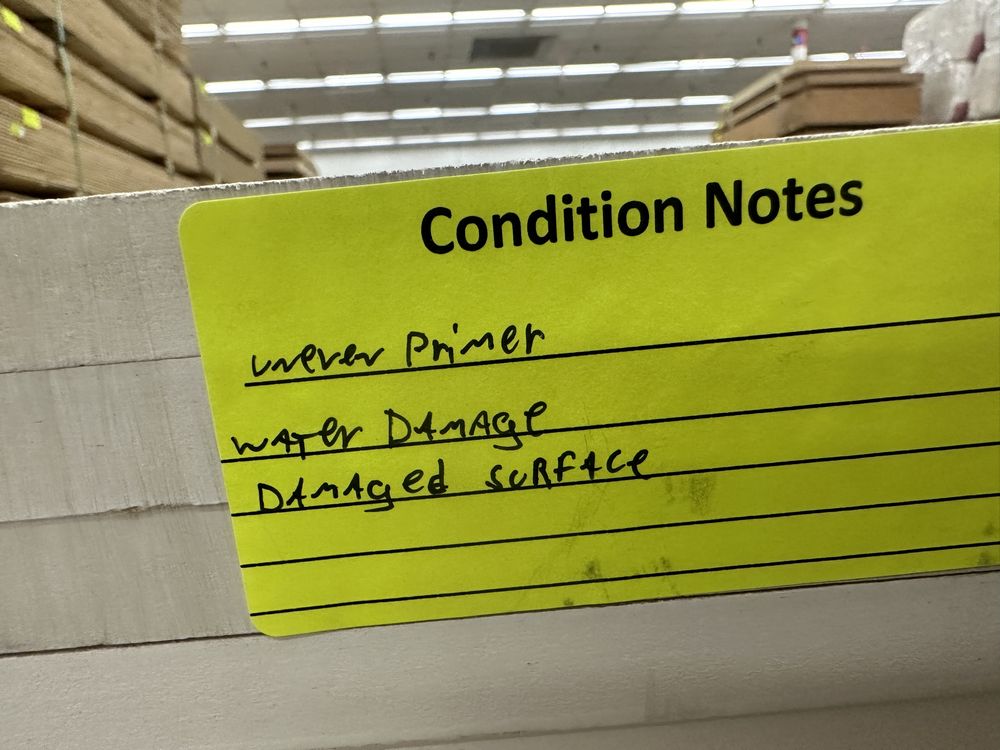 Condition Notes
uneven Primer
WATer DAMAge
DAMAged suRFACe